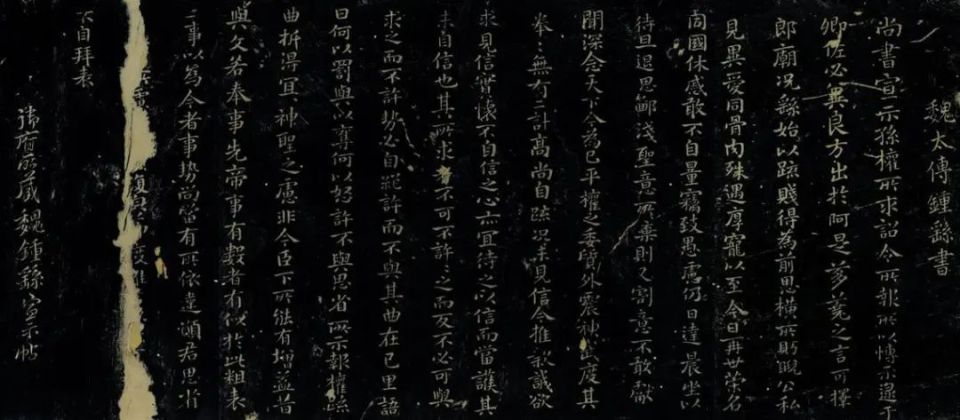 魏太傅鍾繇書
尚書宣示孫權所求詔令所報所以博示逮
卿佐必異良方出於阿是芻蕘之言可擇
郎廟況繇始以疏賤得為前恩橫所盻睨公私
見異愛同骨肉殊遇厚寵以至今日再世榮名
同國休慼敢不自量竊致愚慮仍日達晨坐以
待旦退思鄙淺聖意所棄則又割意不敢獻
聞深念天下今為已平權之委質外震神武度其
拳〻無有二計高尚自疏況未見信今推款誠欲
求見信實懷不自信之心亦宜待之以信而當護其
未自信也其所求者不可不許〻之而反不必可與
求之而不許勢必自絕許而不與其曲在己里語
曰何以罰與以奪何以怒許不與思省所示報權疏
曲折得宜〻神聖之慮非今臣下所能有增益昔
與文若奉事先帝事有數者有似於此粗表
二事以為今者事勢尚當有所依違願君思省
須復度唯
不自拜表
御府所藏魏鍾繇宣示帖